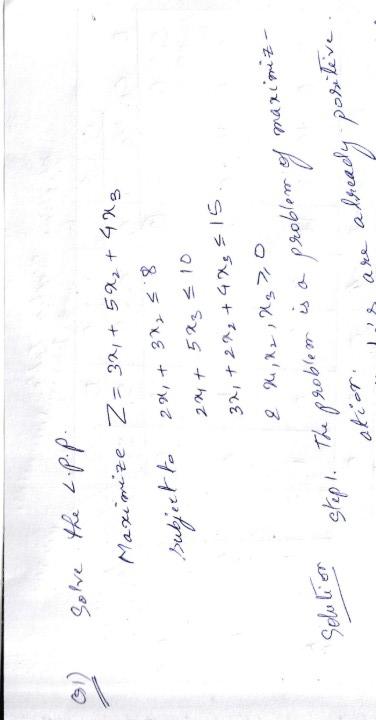 Q1) Solve the L.P.P.
Maximize Z = 3x₁ + 5x₂ + 4x₃
Subject to 2x₁ + 3x₂ ≤ 8
2x₁ + 5x₃ ≤ 10
3x₁ + 2x₂ + 4x₃ ≤ 15.
& x₁, x₂, x₃ ≥ 0
Solution Step 1. The problem is a problem of maximiz-
ation.
are already positive.